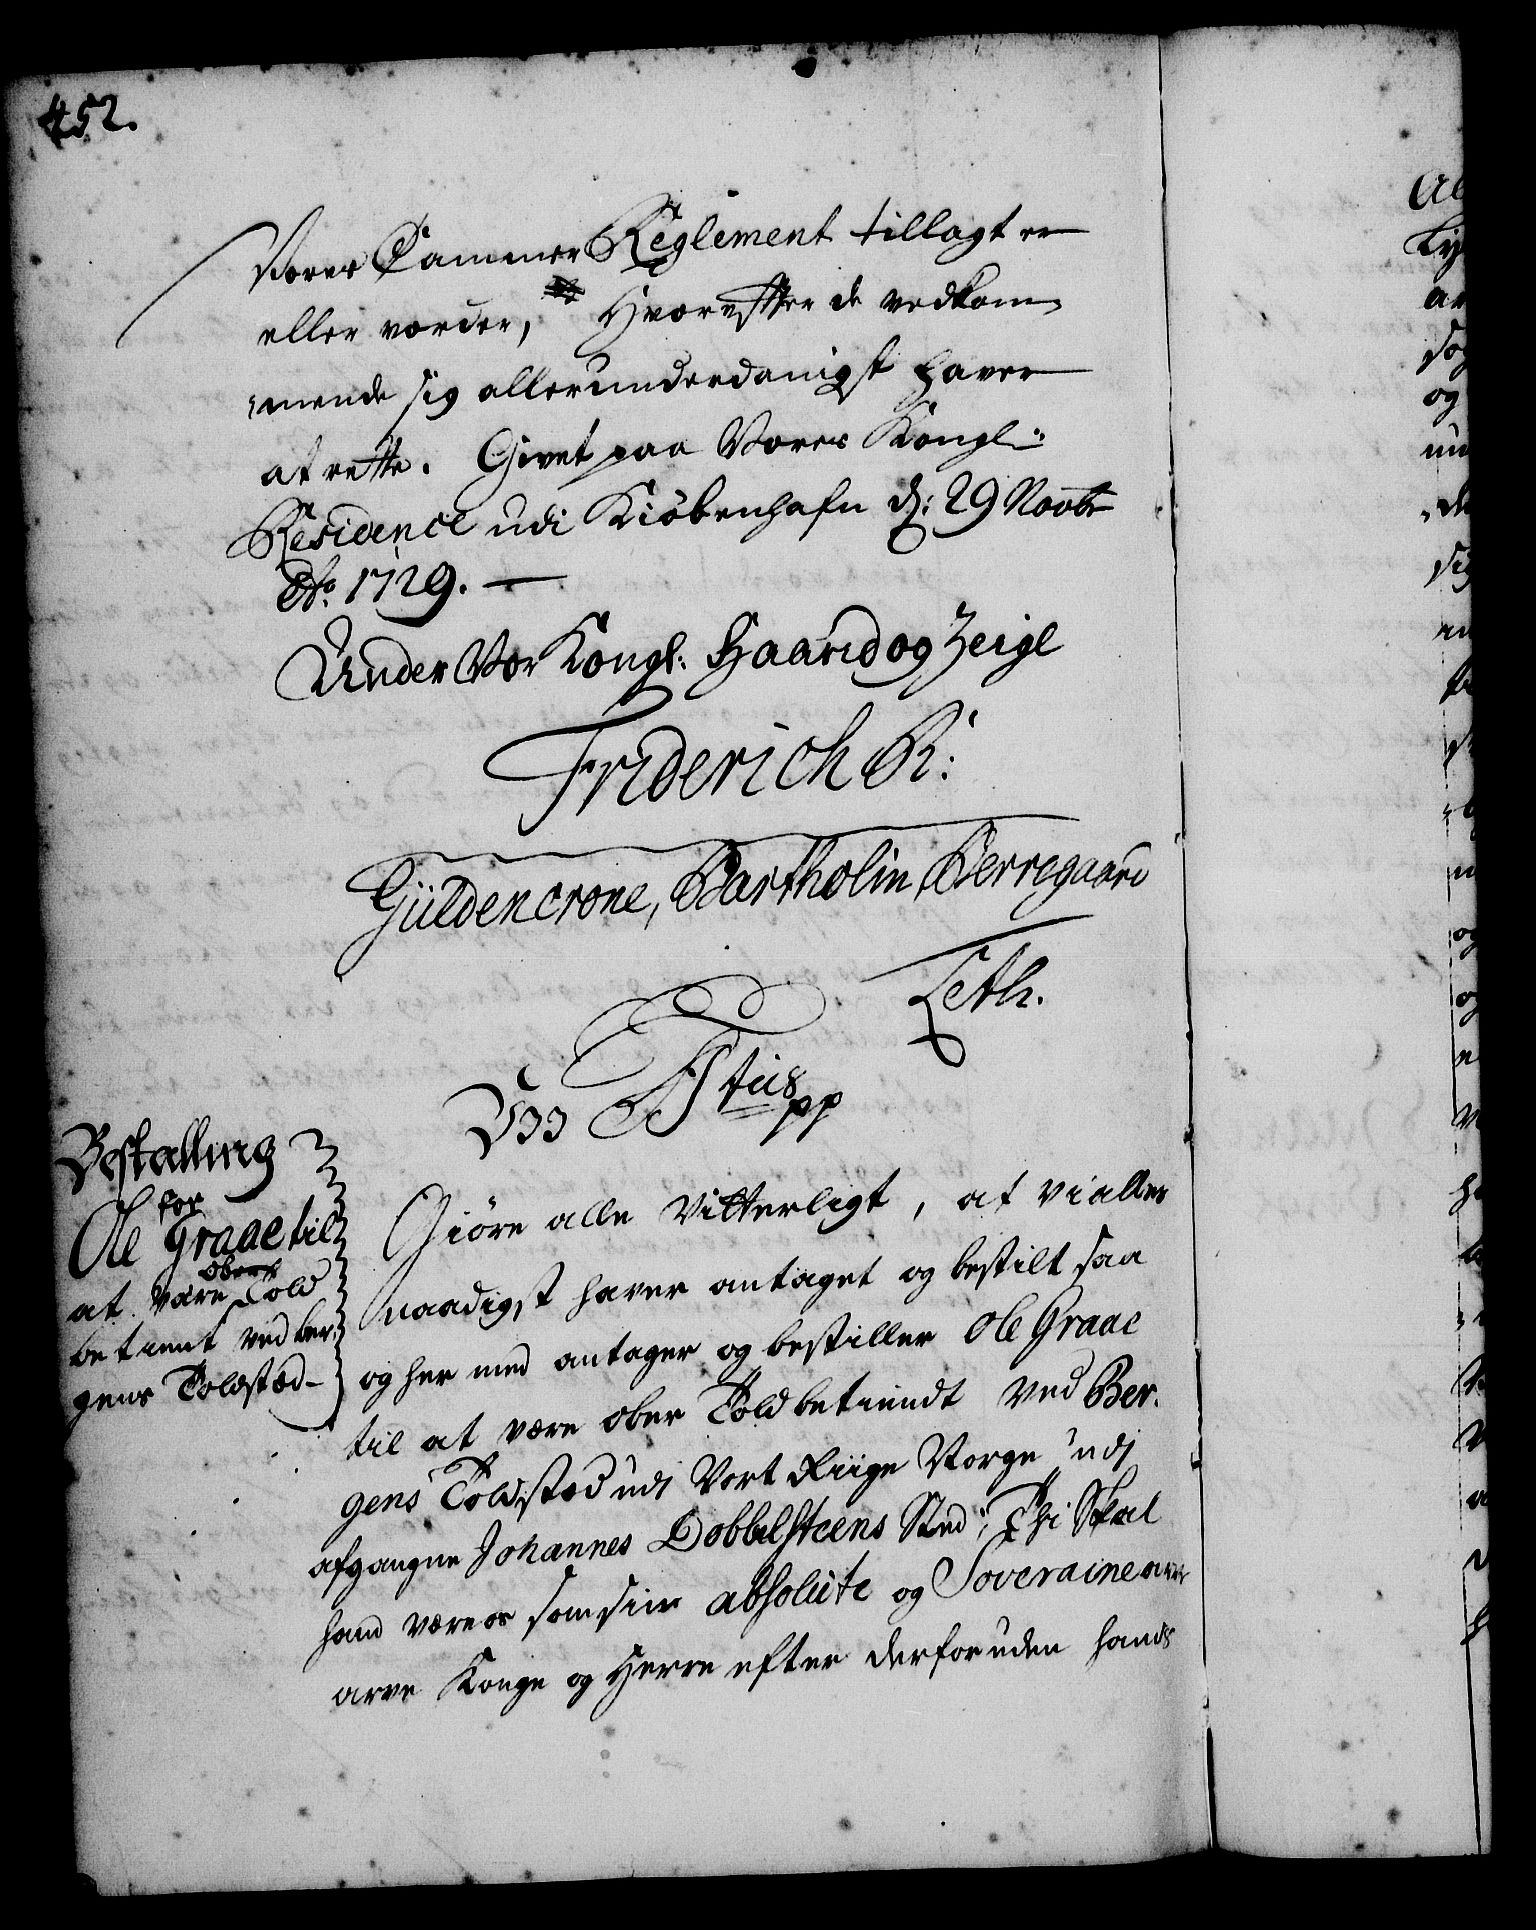 452.
Vores Cammer Reglement tillagt er
eller vorder, Hvorefter de vedkom¬
mende sig allerunderdanigst haver
at rette. Givet paa Vores Kongl:
Residence udi Kiøbenhafn d: 29 Novbr
Ao. 1729. —
Under Vor Kongl: Haand og Zeigl
Friderich R:
Güldencrone, Bartholin, Berregaard
Leth.
Vii F 4tus pp
Bestalling
for
Ole Graae til
at være ober Told
betient ved Ber¬
gens Toldsted-
Giøre alle Vitterligt, at vi aller
naadigst haver antaget og bestilt saa
og her med antager og bestiller Ole Graae
til at være ober Toldbetiendt ved Ber¬
gens Toldsted udj Vort Riige Norge udj
afgangne Johannes Dobbelsteens Sted; Thi Skal
hand være os som sin absolute og Soveraine
arve Konge og Herre efter derforuden hands